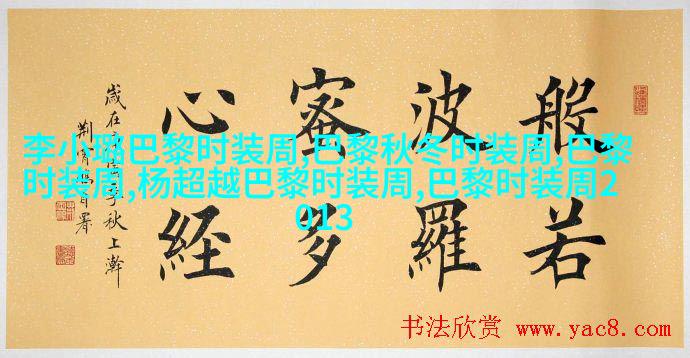 般若
波羅
蜜多
心經
歲在季秋上澣
荊霄鵬署
李小璐巴黎时装周,巴黎秋冬时装周,巴黎
时装周,杨超越巴黎时装周,巴黎时装周2
013
书法欣赏 www.yac8.com